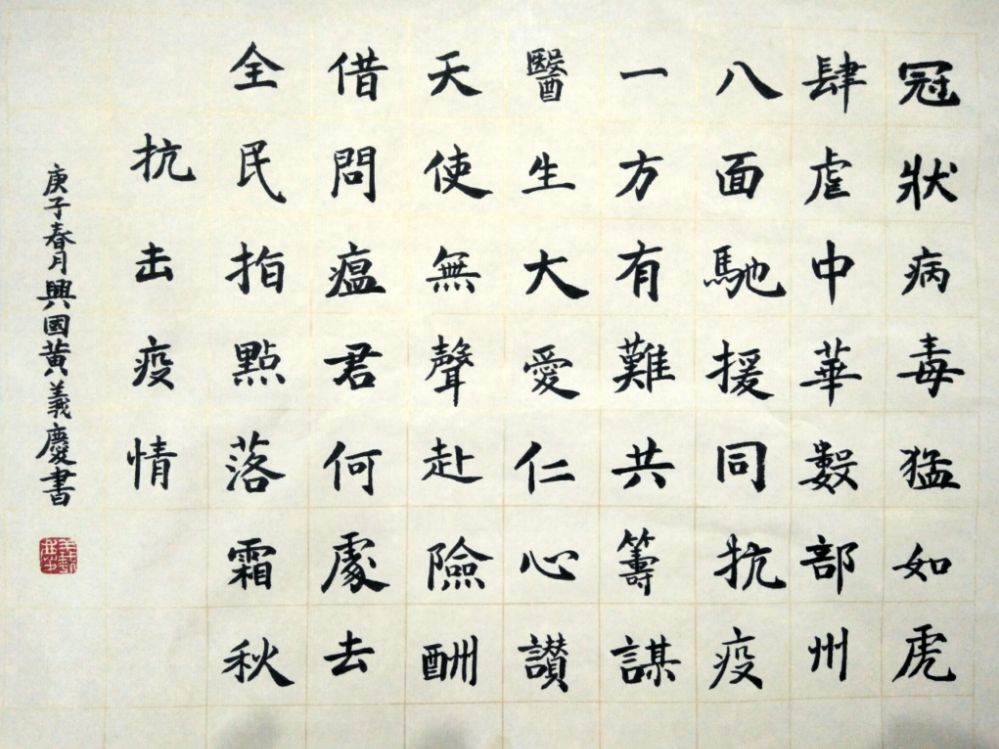 冠狀病毒猛如虎
肆虐中華數部州
八面馳援同抗疫
一方有難共籌謀
醫生大愛仁心讃
天使無聲赴險酬
借問瘟君何處去
全民拍點落霜秋
抗击疫情
庚子春月興國黄義慶書